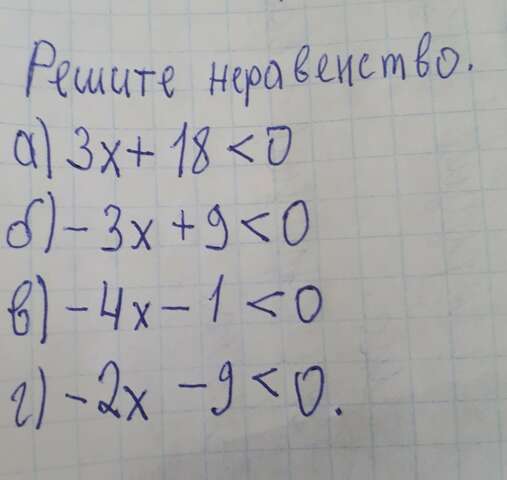 Решите неравенство.
а) 3x + 18 < 0
б) - 3x + 9 < 0
в) - 4x - 1 < 0
г) - 2x - 9 < 0.